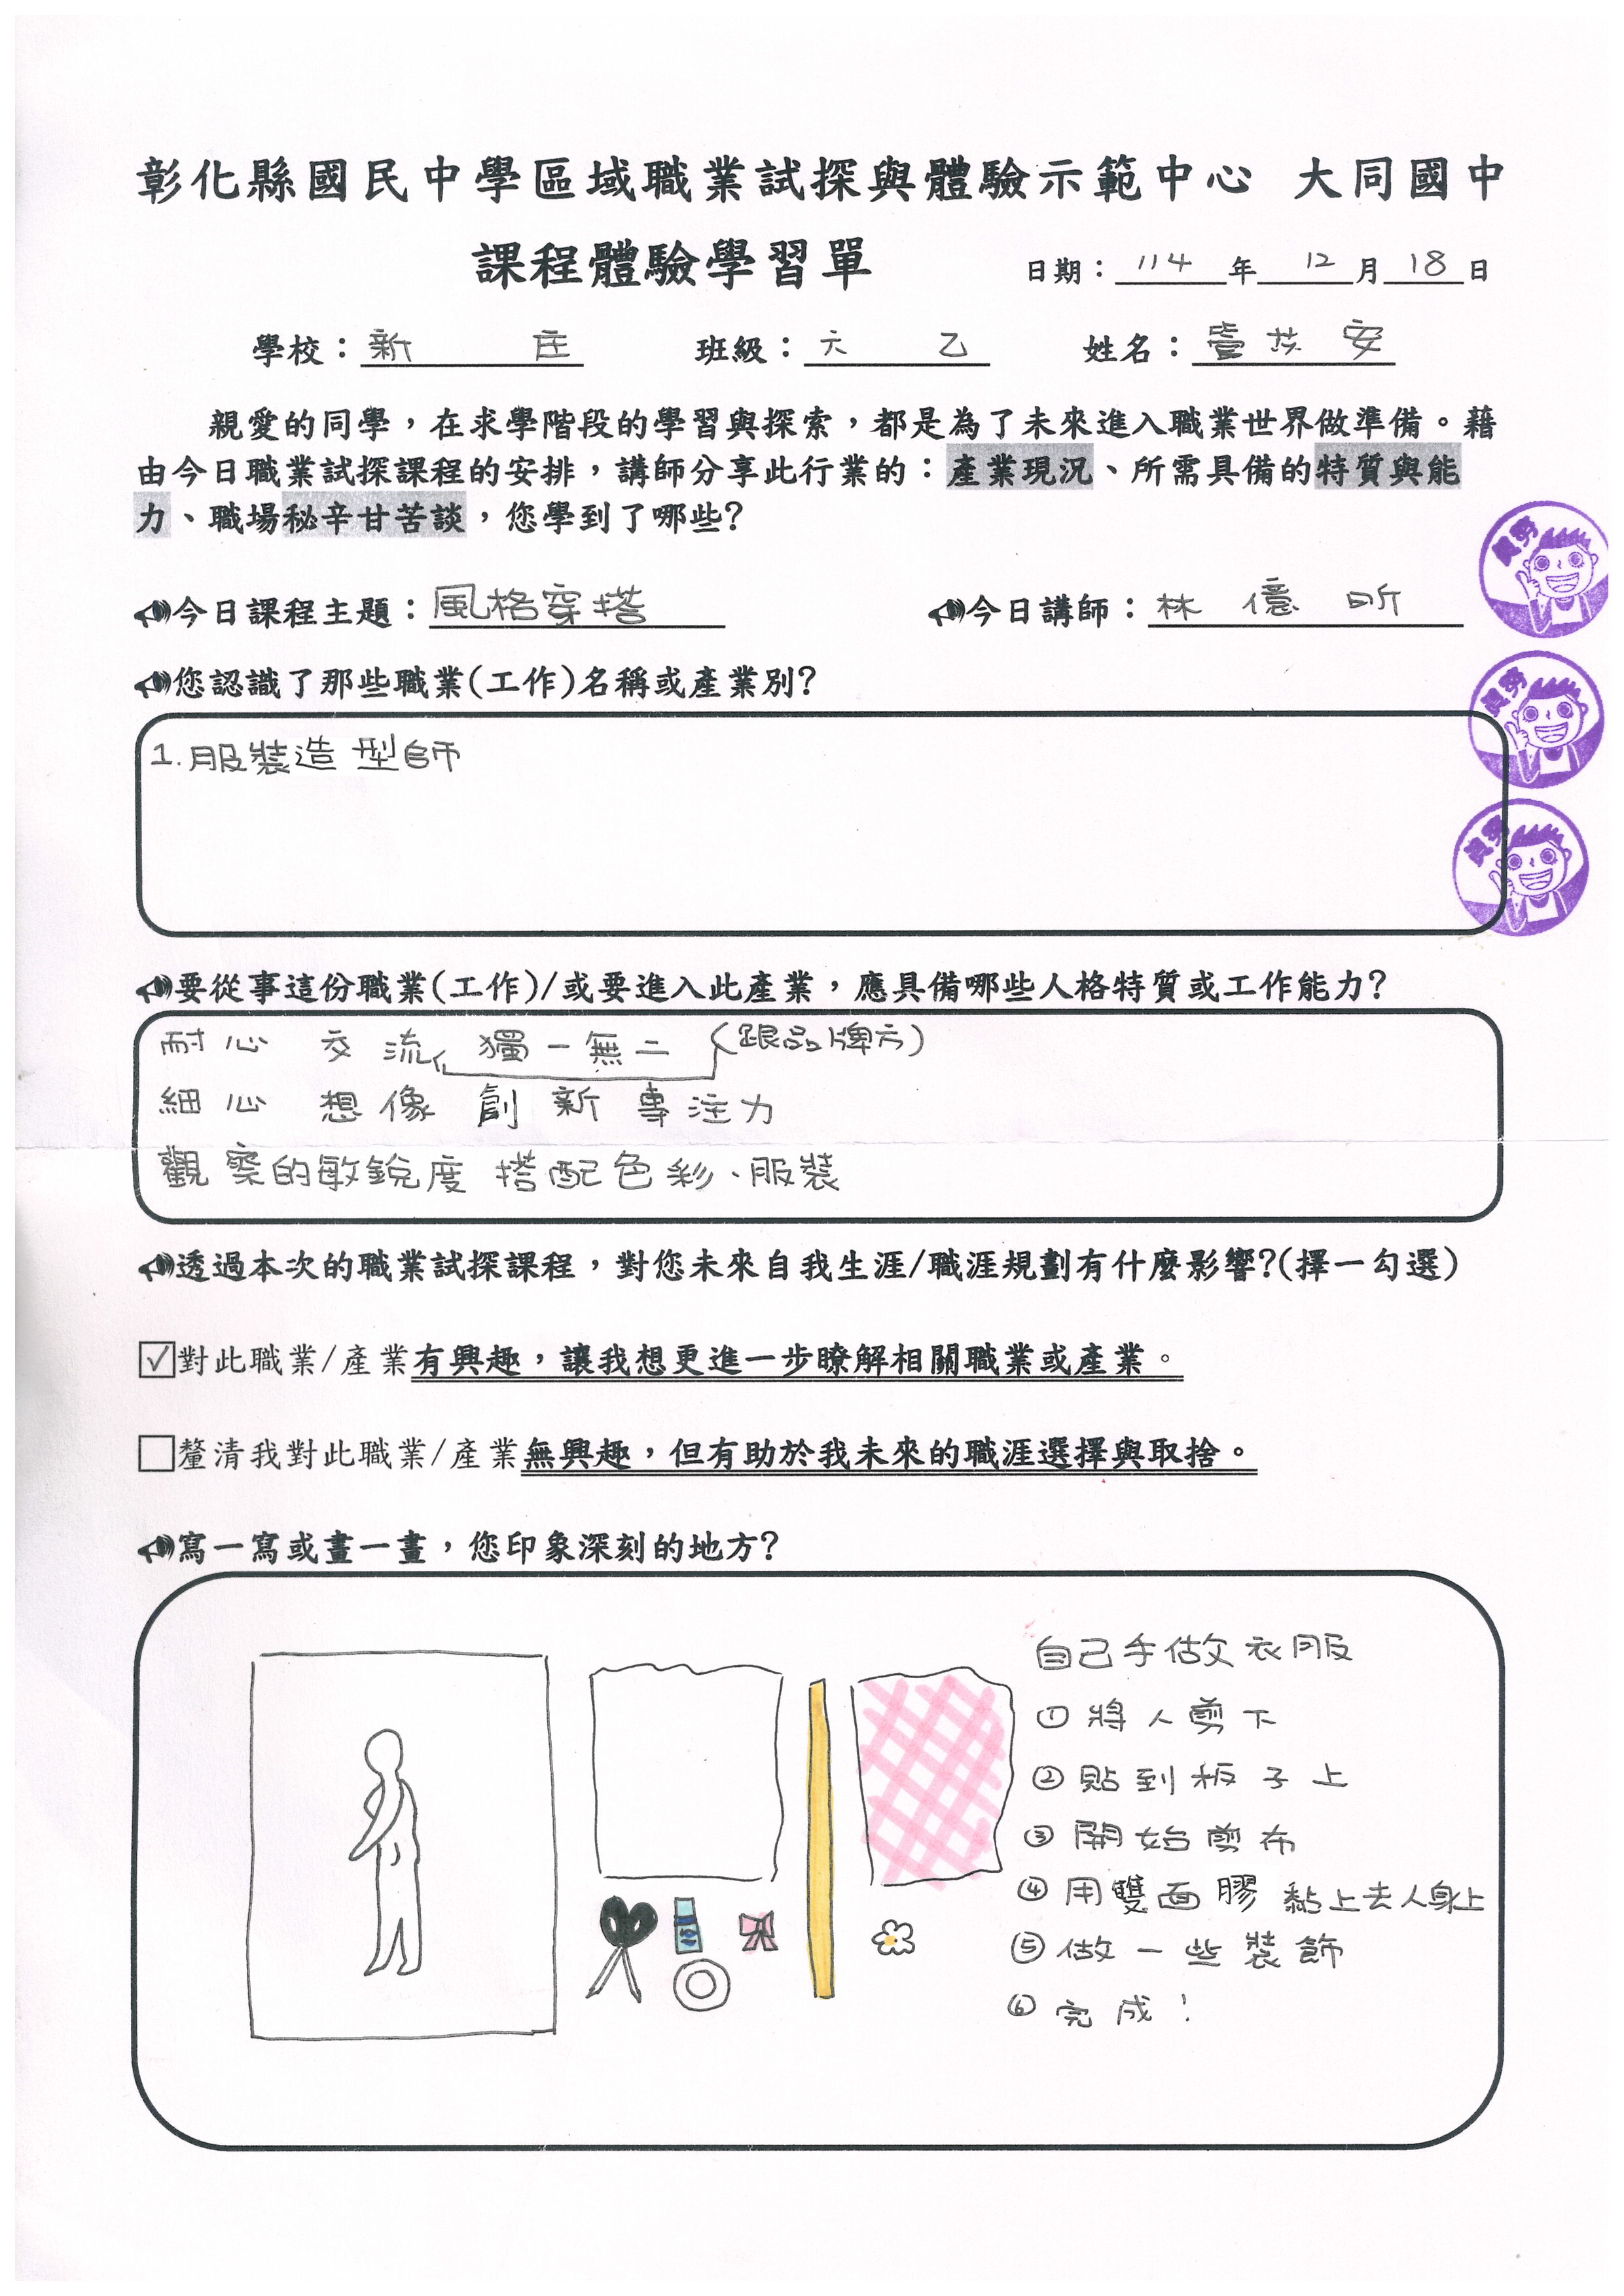 彰化縣國民中學區域職業試探與體驗示範中心 大同國中
課程體驗學習單 日期：114年12月18日
學校：新庄 班級：六乙 姓名：安
親愛的同學，在求學階段的學習與探索，都是為了未來進入職業世界做準備。藉
由今日職業試探課程的安排，講師分享此行業的：產業現況、所需具備的特質與能
力、職場秘辛甘苦談，您學到了哪些?
今日課程主題：風格穿搭 今日講師：林億昕
您認識了那些職業(工作)名稱或產業別?
1.服裝造型師
要從事這份職業(工作)/或要進入此產業，應具備哪些人格特質或工作能力?
耐心 交流 獨一無二 (跟品牌方)
細心 想像 創新 專注力
觀察的敏銳度 搭配色彩、服裝
透過本次的職業試探課程，對您未來自我生涯/職涯規劃有什麼影響?(擇一勾選)
☑對此職業/產業有興趣，讓我想更進一步瞭解相關職業或產業。
□釐清我對此職業/產業無興趣，但有助於我未來的職涯選擇與取捨。
寫一寫或畫一畫，您印象深刻的地方?
自己手做衣服
①將人剪下
②貼到板子上
③開始剪布
④用雙面膠黏上去人身上
⑤做一些裝飾
⑥完成！